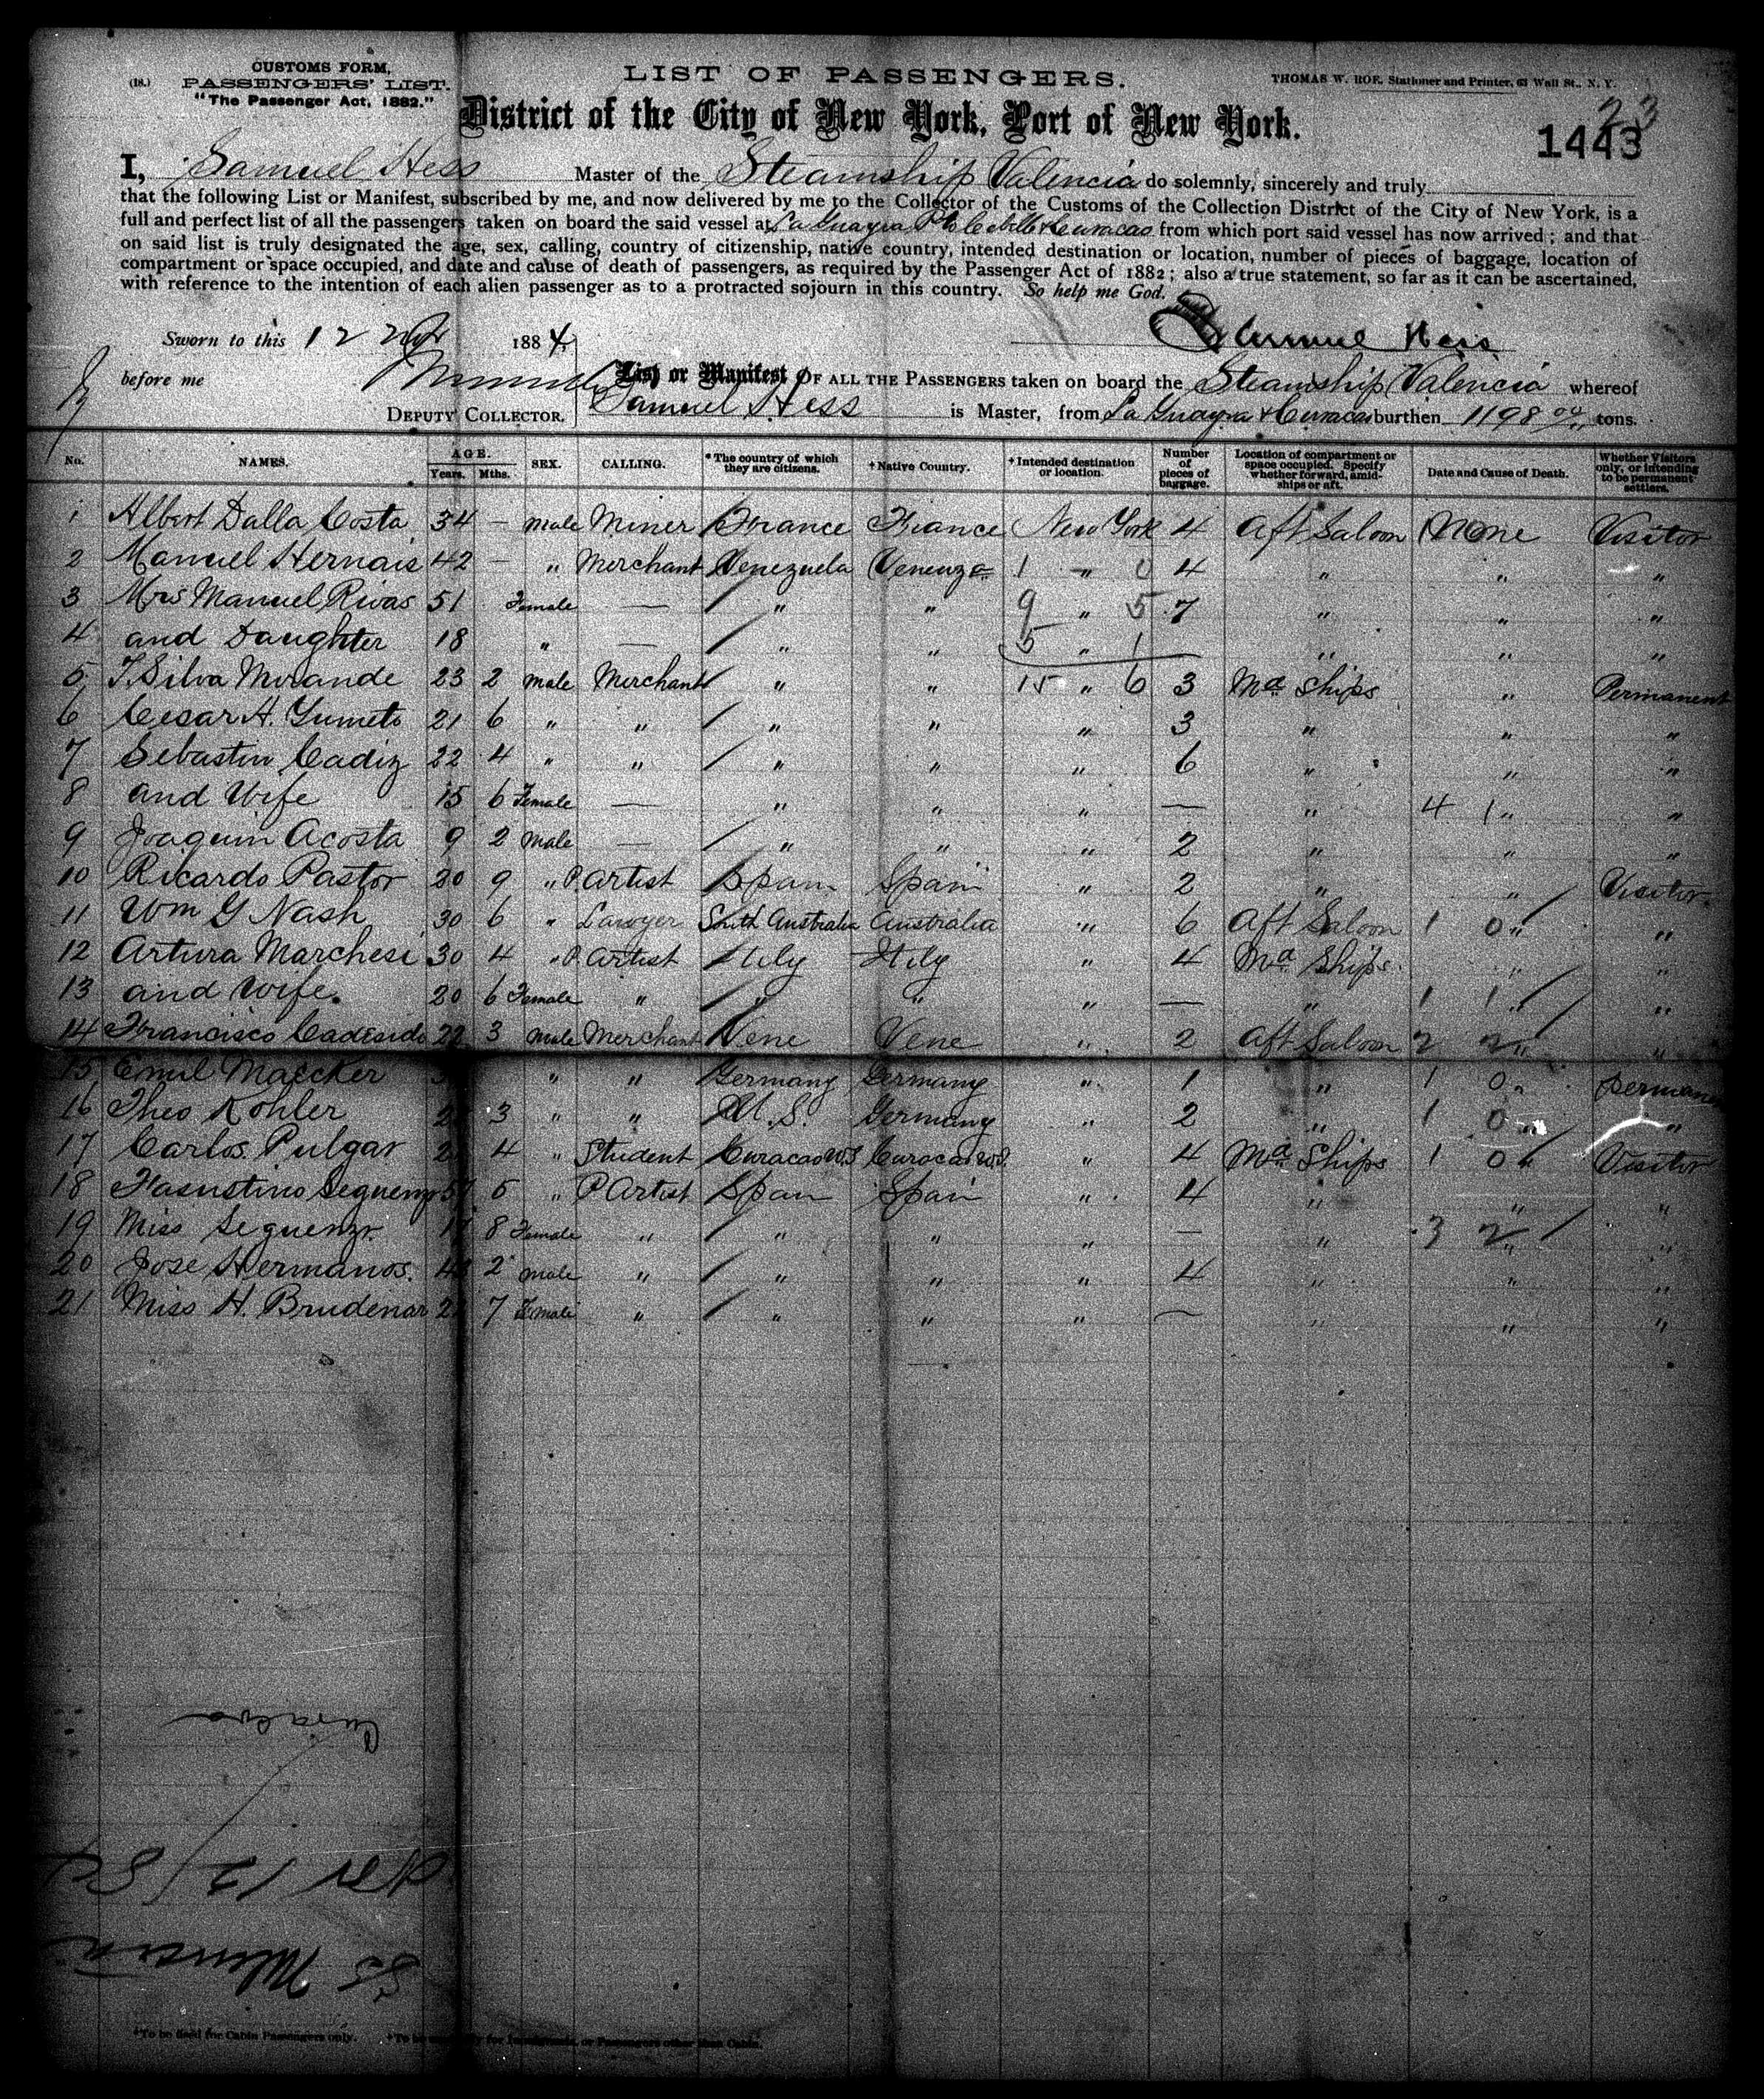 CUSTOMS FORM,
(18.) PASSENGERS' LIST.
"The Passenger Act, 1882."
LIST OF PASSENGERS.
THOMAS W. ROE, Stationer and Printer, 63 Wall St., N. Y.
District of the City of New York, Port of New York.
23
1443
I, Samuel Hess Master of the Steamship Valencia do solemnly, sincerely and truly
that the following List or Manifest, subscribed by me, and now delivered by me to the Collector of the Customs of the Collection District of the City of New York, is a
full and perfect list of all the passengers taken on board the said vessel at La Guayra Pto Cabello & Curacao from which port said vessel has now arrived; and that
on said list is truly designated the age, sex, calling, country of citizenship, native country, intended destination or location, number of pieces of baggage, location of
compartment or space occupied, and date and cause of death of passengers, as required by the Passenger Act of 1882; also a true statement, so far as it can be ascertained,
with reference to the intention of each alien passenger as to a protracted sojourn in this country. So help me God.
Samuel Hess
Sworn to this 12 1884
before me
DEPUTY COLLECTOR.
List or Manifest OF ALL THE PASSENGERS taken on board the Steamship Valencia whereof
Samuel Hess is Master, from La Guayra & Curacao burthen 1198 tons.
No. NAMES. AGE. Years. Mths. SEX. CALLING. *The country of which they are citizens. †Native Country. †Intended destination or location. Number of pieces of baggage. Location of compartment or space occupied. Specify whether forward, amidships or aft. Date and Cause of Death. Whether Visitors only, or intending to be permanent settlers.
1 Albert Dalla Costa 34 – male Miner France France New York 4 Aft Saloon None Visitor
2 Manuel Hernais 42 – " Merchant Venezuela Venenza 1 " 0 4 " " "
3 Mrs Manuel Rivas 51 Female — " " 9 " 5 7 " " "
4 and Daughter 18 " — " " 5 " 1 " " "
5 J. Silva Mirande 23 2 male Merchant " " 15 " 6 3 Md Ships " Permanent
6 Cesar A. Gumeto 21 6 " " " " " 3 " " "
7 Sebastin Cadiz 22 4 " " " " " 6 " " "
8 and Wife 15 6 Female — " " " — " 4 1 " "
9 Joaquin Acosta 9 2 male — " " " 2 " " "
10 Ricardo Pastor 20 9 " P. Artist Spain Spain " 2 " " Visitor
11 Wm G Nash 30 6 " Lawyer South Australia Australia " 6 Aft Saloon 1 0 " "
12 Artura Marchesi 30 4 " P. Artist Itily Itily " 4 Md Ships " "
13 and wife. 20 6 Female " " " " — " 1 1 " "
14 Francisco Cadesido 22 3 male Merchant Vene Vene " 2 Aft Saloon 2 2 " "
15 Emil Maecker " " Germany Germany " 1 " 1 0 " Permanent
16 Theo Kohler 3 " " U.S. Germany " 2 " 1 0 " "
17 Carlos Pulgar 4 " Student Curacao W.I Curacao W.I. " 4 Md Ships 1 0 " Visitor
18 Fasustino Seguenza 5 " P Artist Span Spain " 4 " " "
19 Miss Seguenza 8 Female " " " " — " 3 2 " "
20 Jose Hermanos. 2 male " " " " 4 " " "
21 Miss H. Brudenar 7 Female " " " " — " " "
Curacoa
Apr 12/84
SS Valencia
*To be used for Cabin Passengers only. †To be used only for Immigrants, or Passengers other than Cabin.